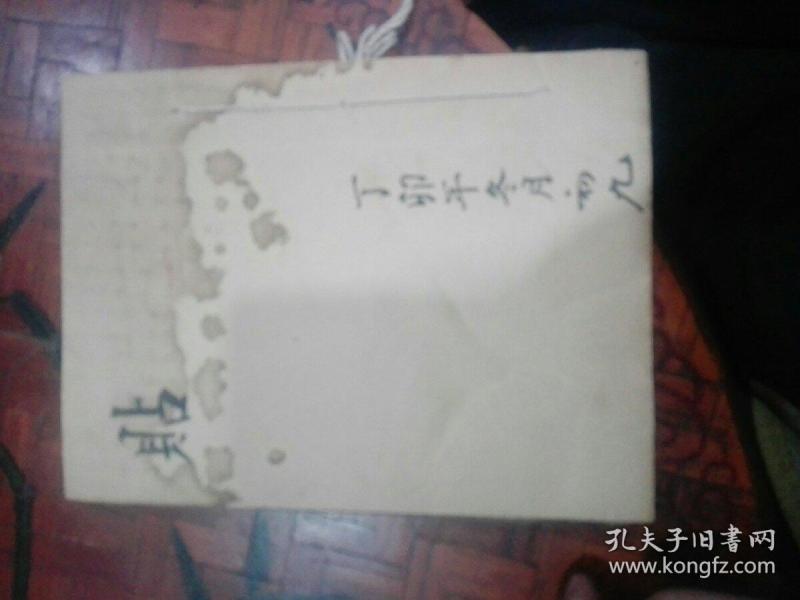 丁卯年冬月初九
貼
孔夫子旧書网
www.kongfz.com